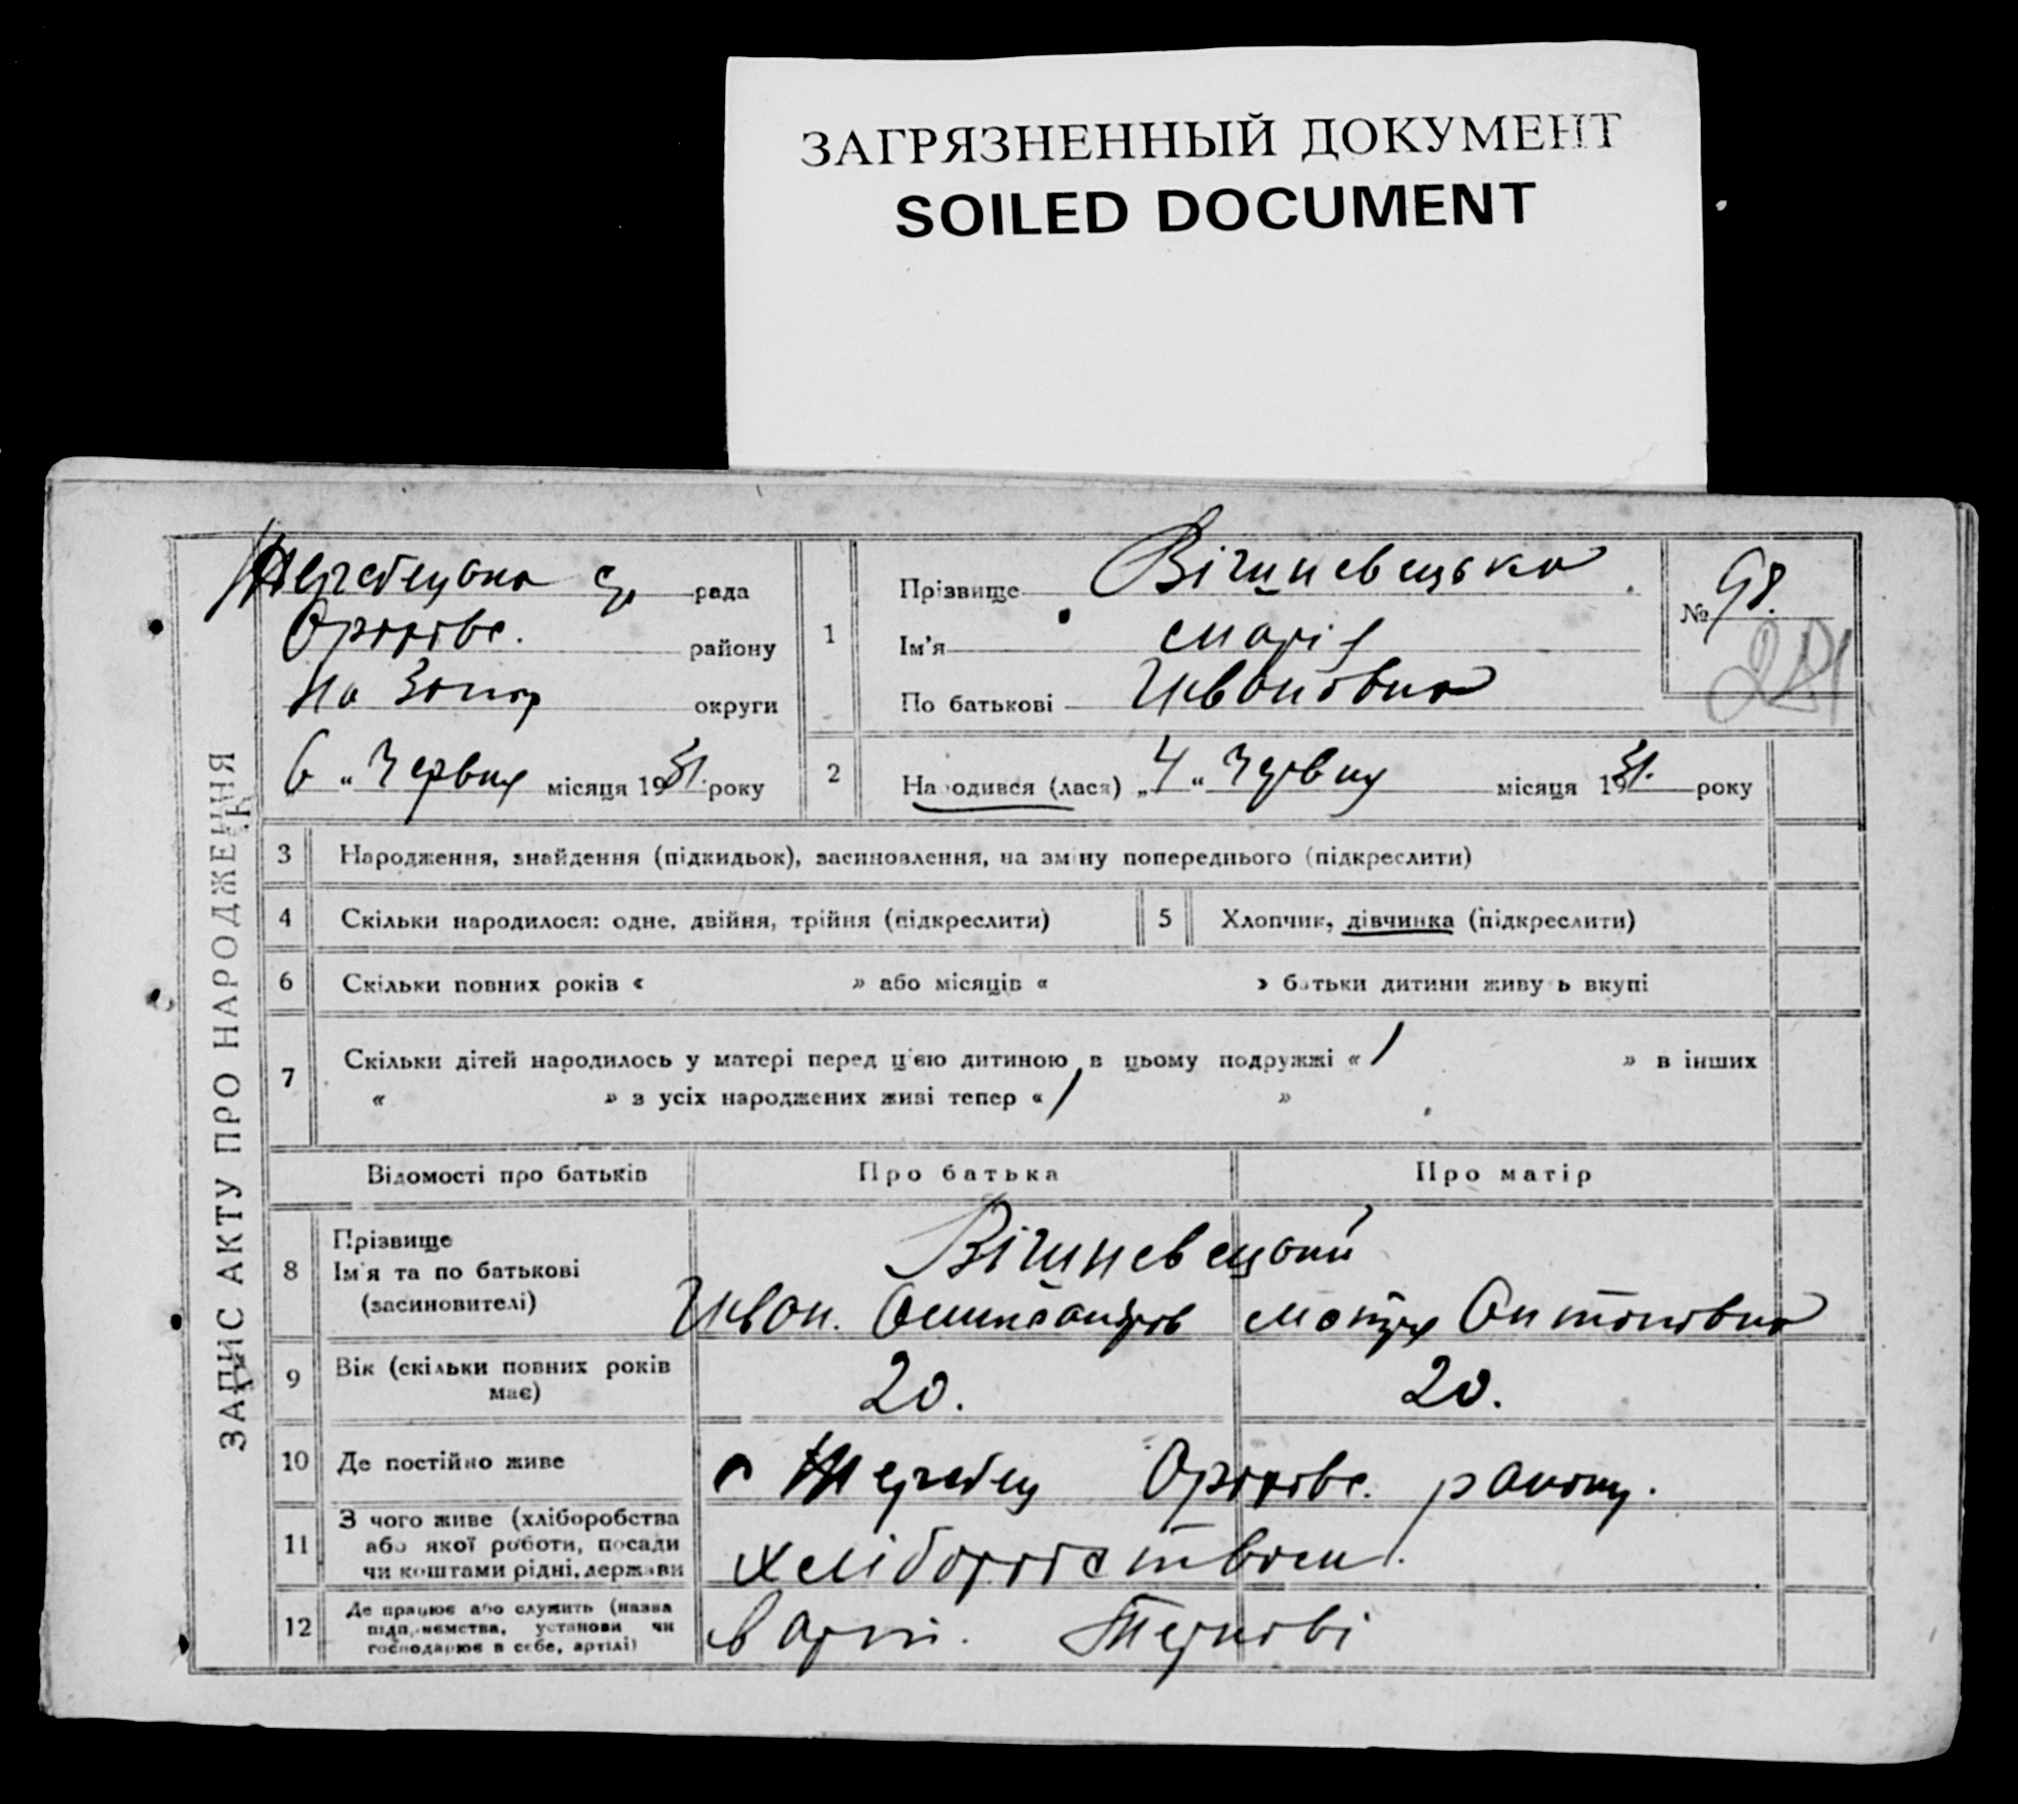 ЗАГРЯЗНЕННЫЙ ДОКУМЕНТ
SOILED DOCUMENT
ЗАПИС АКТУ ПРО НАРОДЖЕННЯ
рада
району
округи
6 „ Червня місяця 1931. року
1
Прізвище Вішневецька
Ім'я Марія
По батькові Ивановна
№ 98.
2
Народився (лася) „ 4 “ Червня місяця 1931. року
3 Народження, знайдення (підкидьок), засиновлення, на зміну попереднього (підкреслити)
4 Скільки народилося: одне, двійня, трійня (підкреслити)
5 Хлопчик, дівчинка (підкреслити)
6 Скільки повних років « » або місяців « » батьки дитини живуть вкупі
7 Скільки дітей народилось у матері перед цією дитиною в цьому подружжі « 1 » в інших
« » з усіх народжених живі тепер « 1 »
Відомості про батьків Про батька Про матір
8 Прізвище
Ім'я та по батькові
(засиновителі)
Вішневецький
Иван. Олександров Мотря Антоновна
9 Вік (скільки повних років
має)
20. 20.
10 Де постійно живе
с Жеребець Оріхівс. району.
11 З чого живе (хліборобства
або якої роботи, посади
чи коштами рідні, держави
хліборобством.
12 Де працює або служить (назва
підприємства, установи чи
господарює в себе, артілі)
в арт.